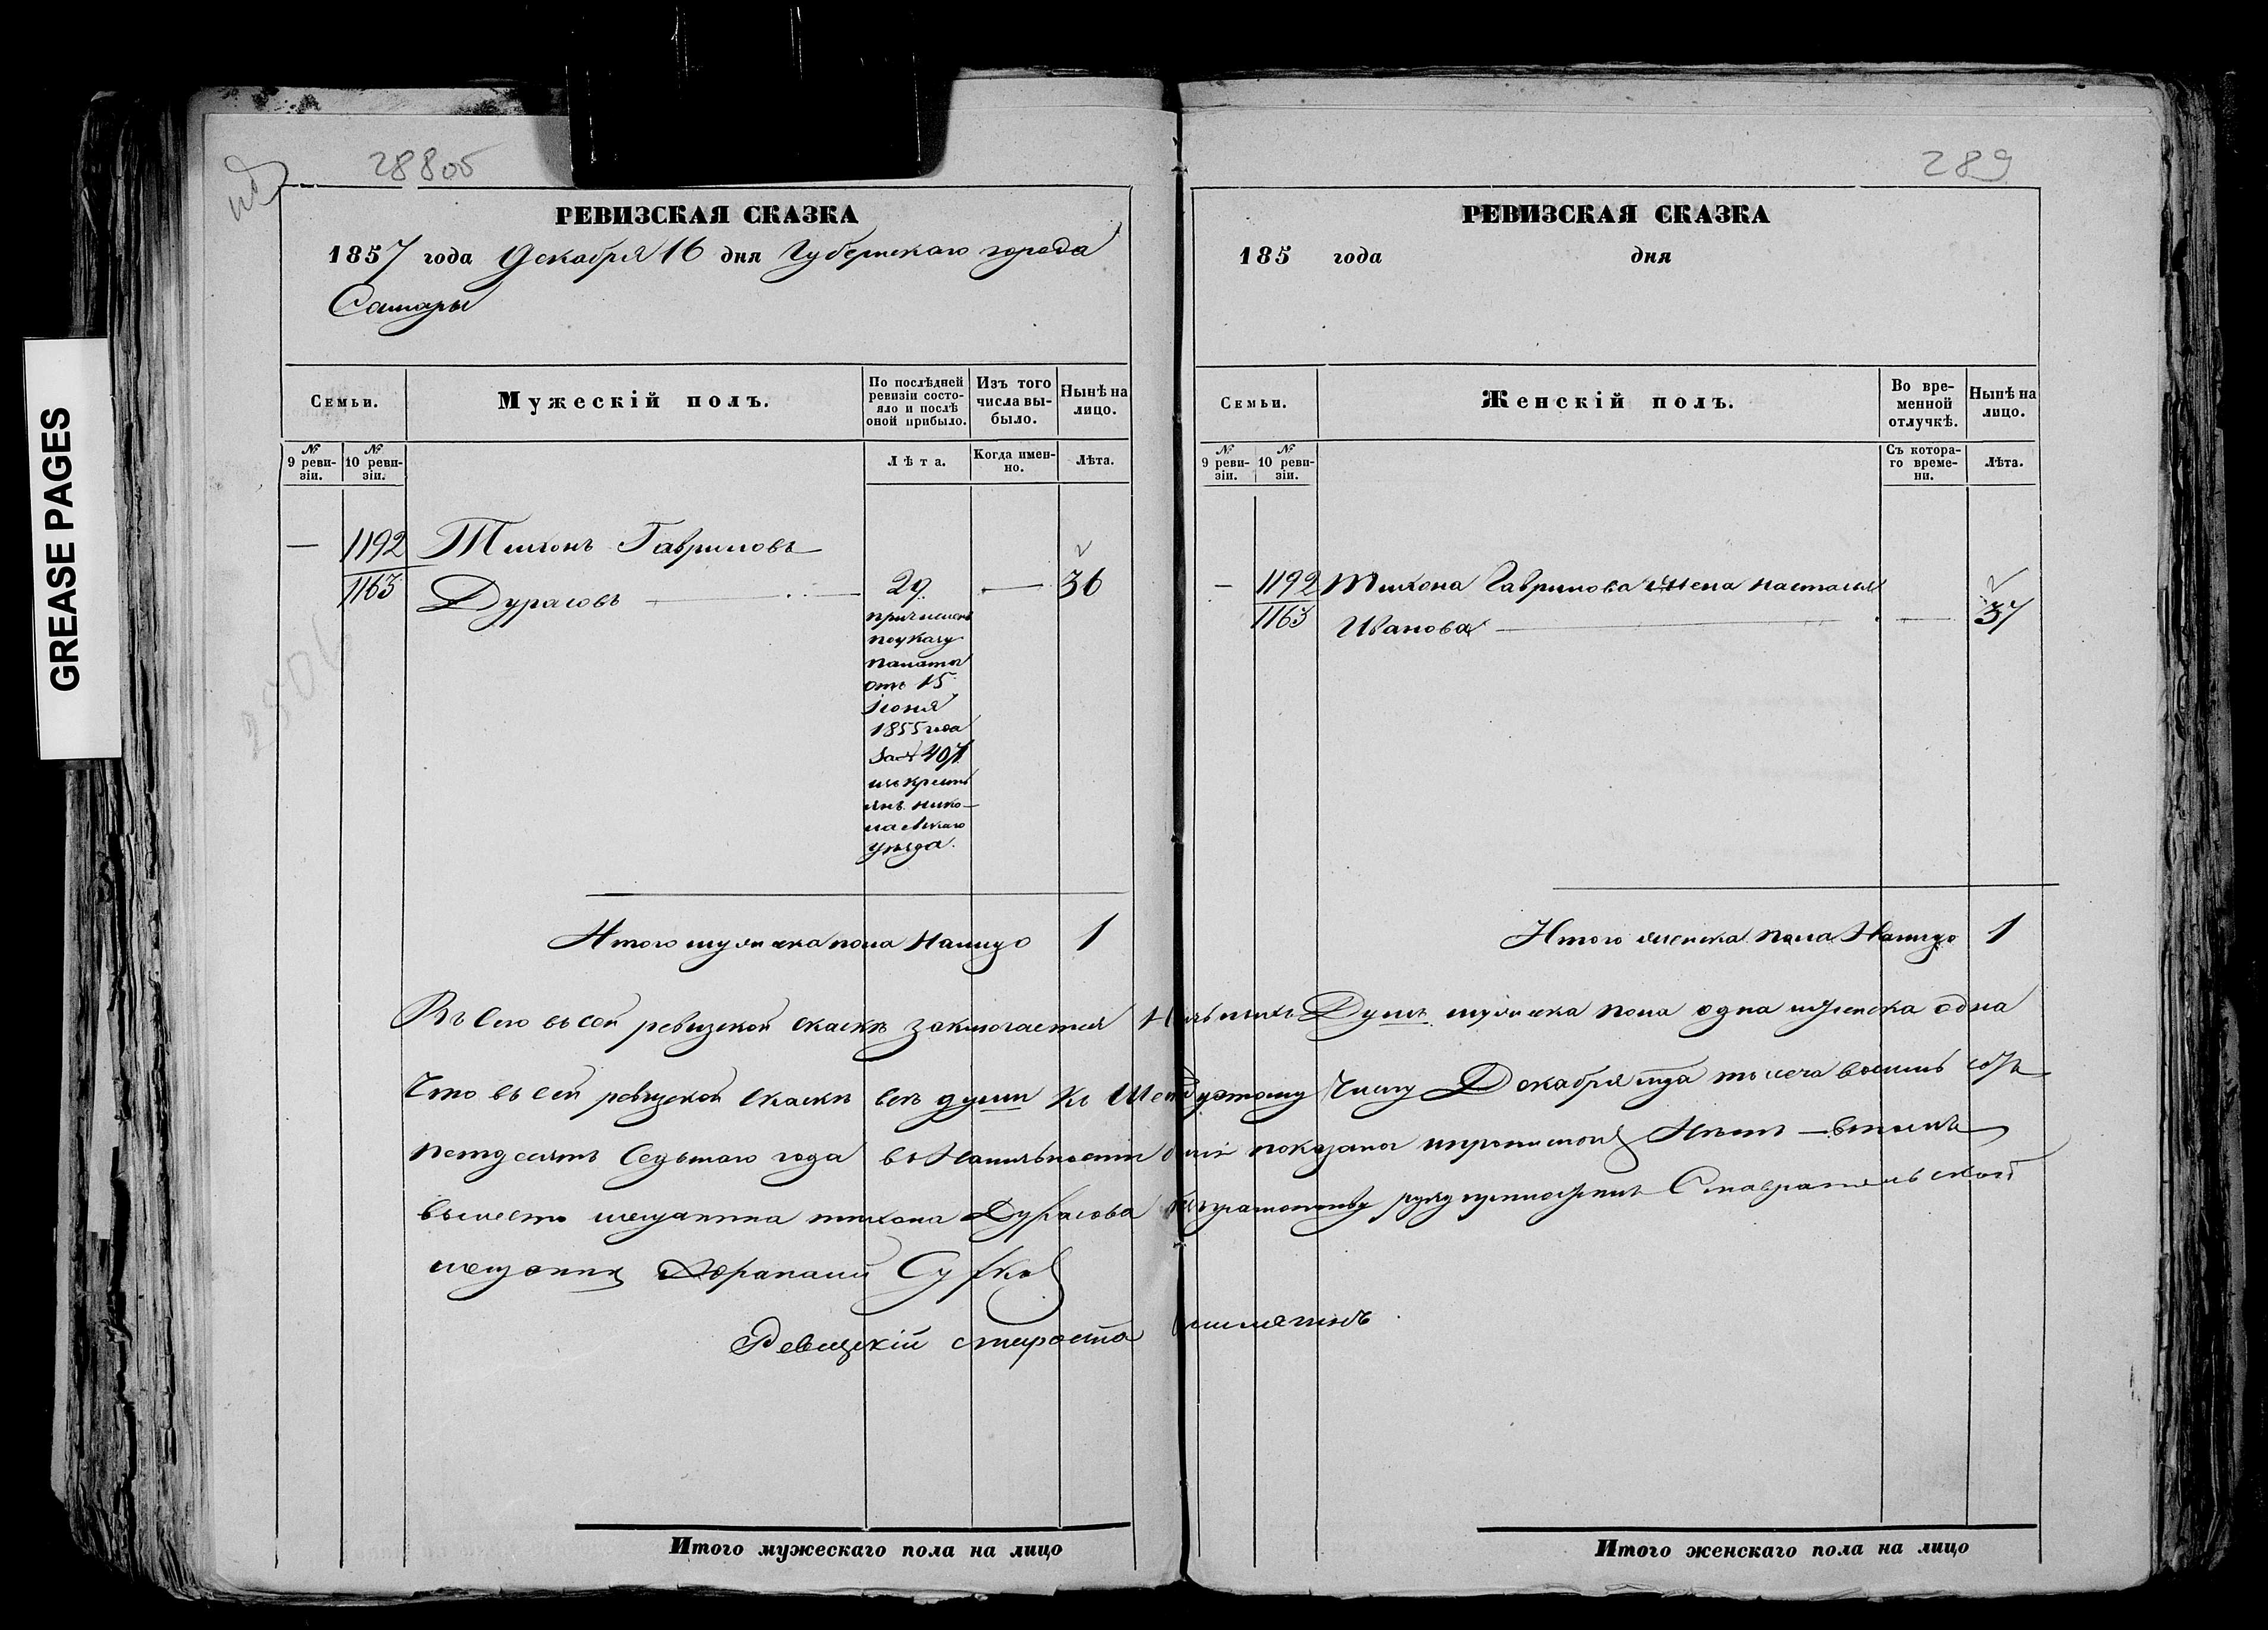 GREASE PAGES
288об
РЕВИЗСКАЯ СКАЗКА
1857 года Декабря 16 дня Губернскаго города
Самары
Семьи.
Мужескій полъ.
По послѣдней ревизіи состояло и послѣ оной прибыло.
Изъ того числа выбыло.
Нынѣ на лицо.
№ 9 ревизіи.
№ 10 ревизіи.
Лѣта.
Когда именно.
Лѣта.
— 1192 Тихонъ Гавриловъ
1163 Дурасовъ 29 — 36
причисленъ
по указу
палаты
отъ 15
Іюня
1855 года
за №
изъ кресть
янъ Нико-
лаевскаго
уѣзда.
Итого мужеска пола налицо 1
289
РЕВИЗСКАЯ СКАЗКА
185 года дня
Семьи.
Женскій полъ.
Во временной отлучкѣ.
Нынѣ на лицо.
№ 9 ревизіи.
№ 10 ревизіи.
Съ котораго времени.
Лѣта.
— 1192 Тихона Гаврилова жена Насталья
1163 Иванова — 37
Итого женска пола налицо 1
въ сей ревизской скаскѣ заключается Душъ мужеска пола одна женска одна
Что въ сей ревизской скаскѣ всѣ души къ числу Декабря тысеча восемь сотъ
петдесятъ седьмаго года въ показаны
вместо мещанина Тихона Дурасова
мещанинъ
староста
Итого мужескаго пола на лицо
Итого женскаго пола на лицо